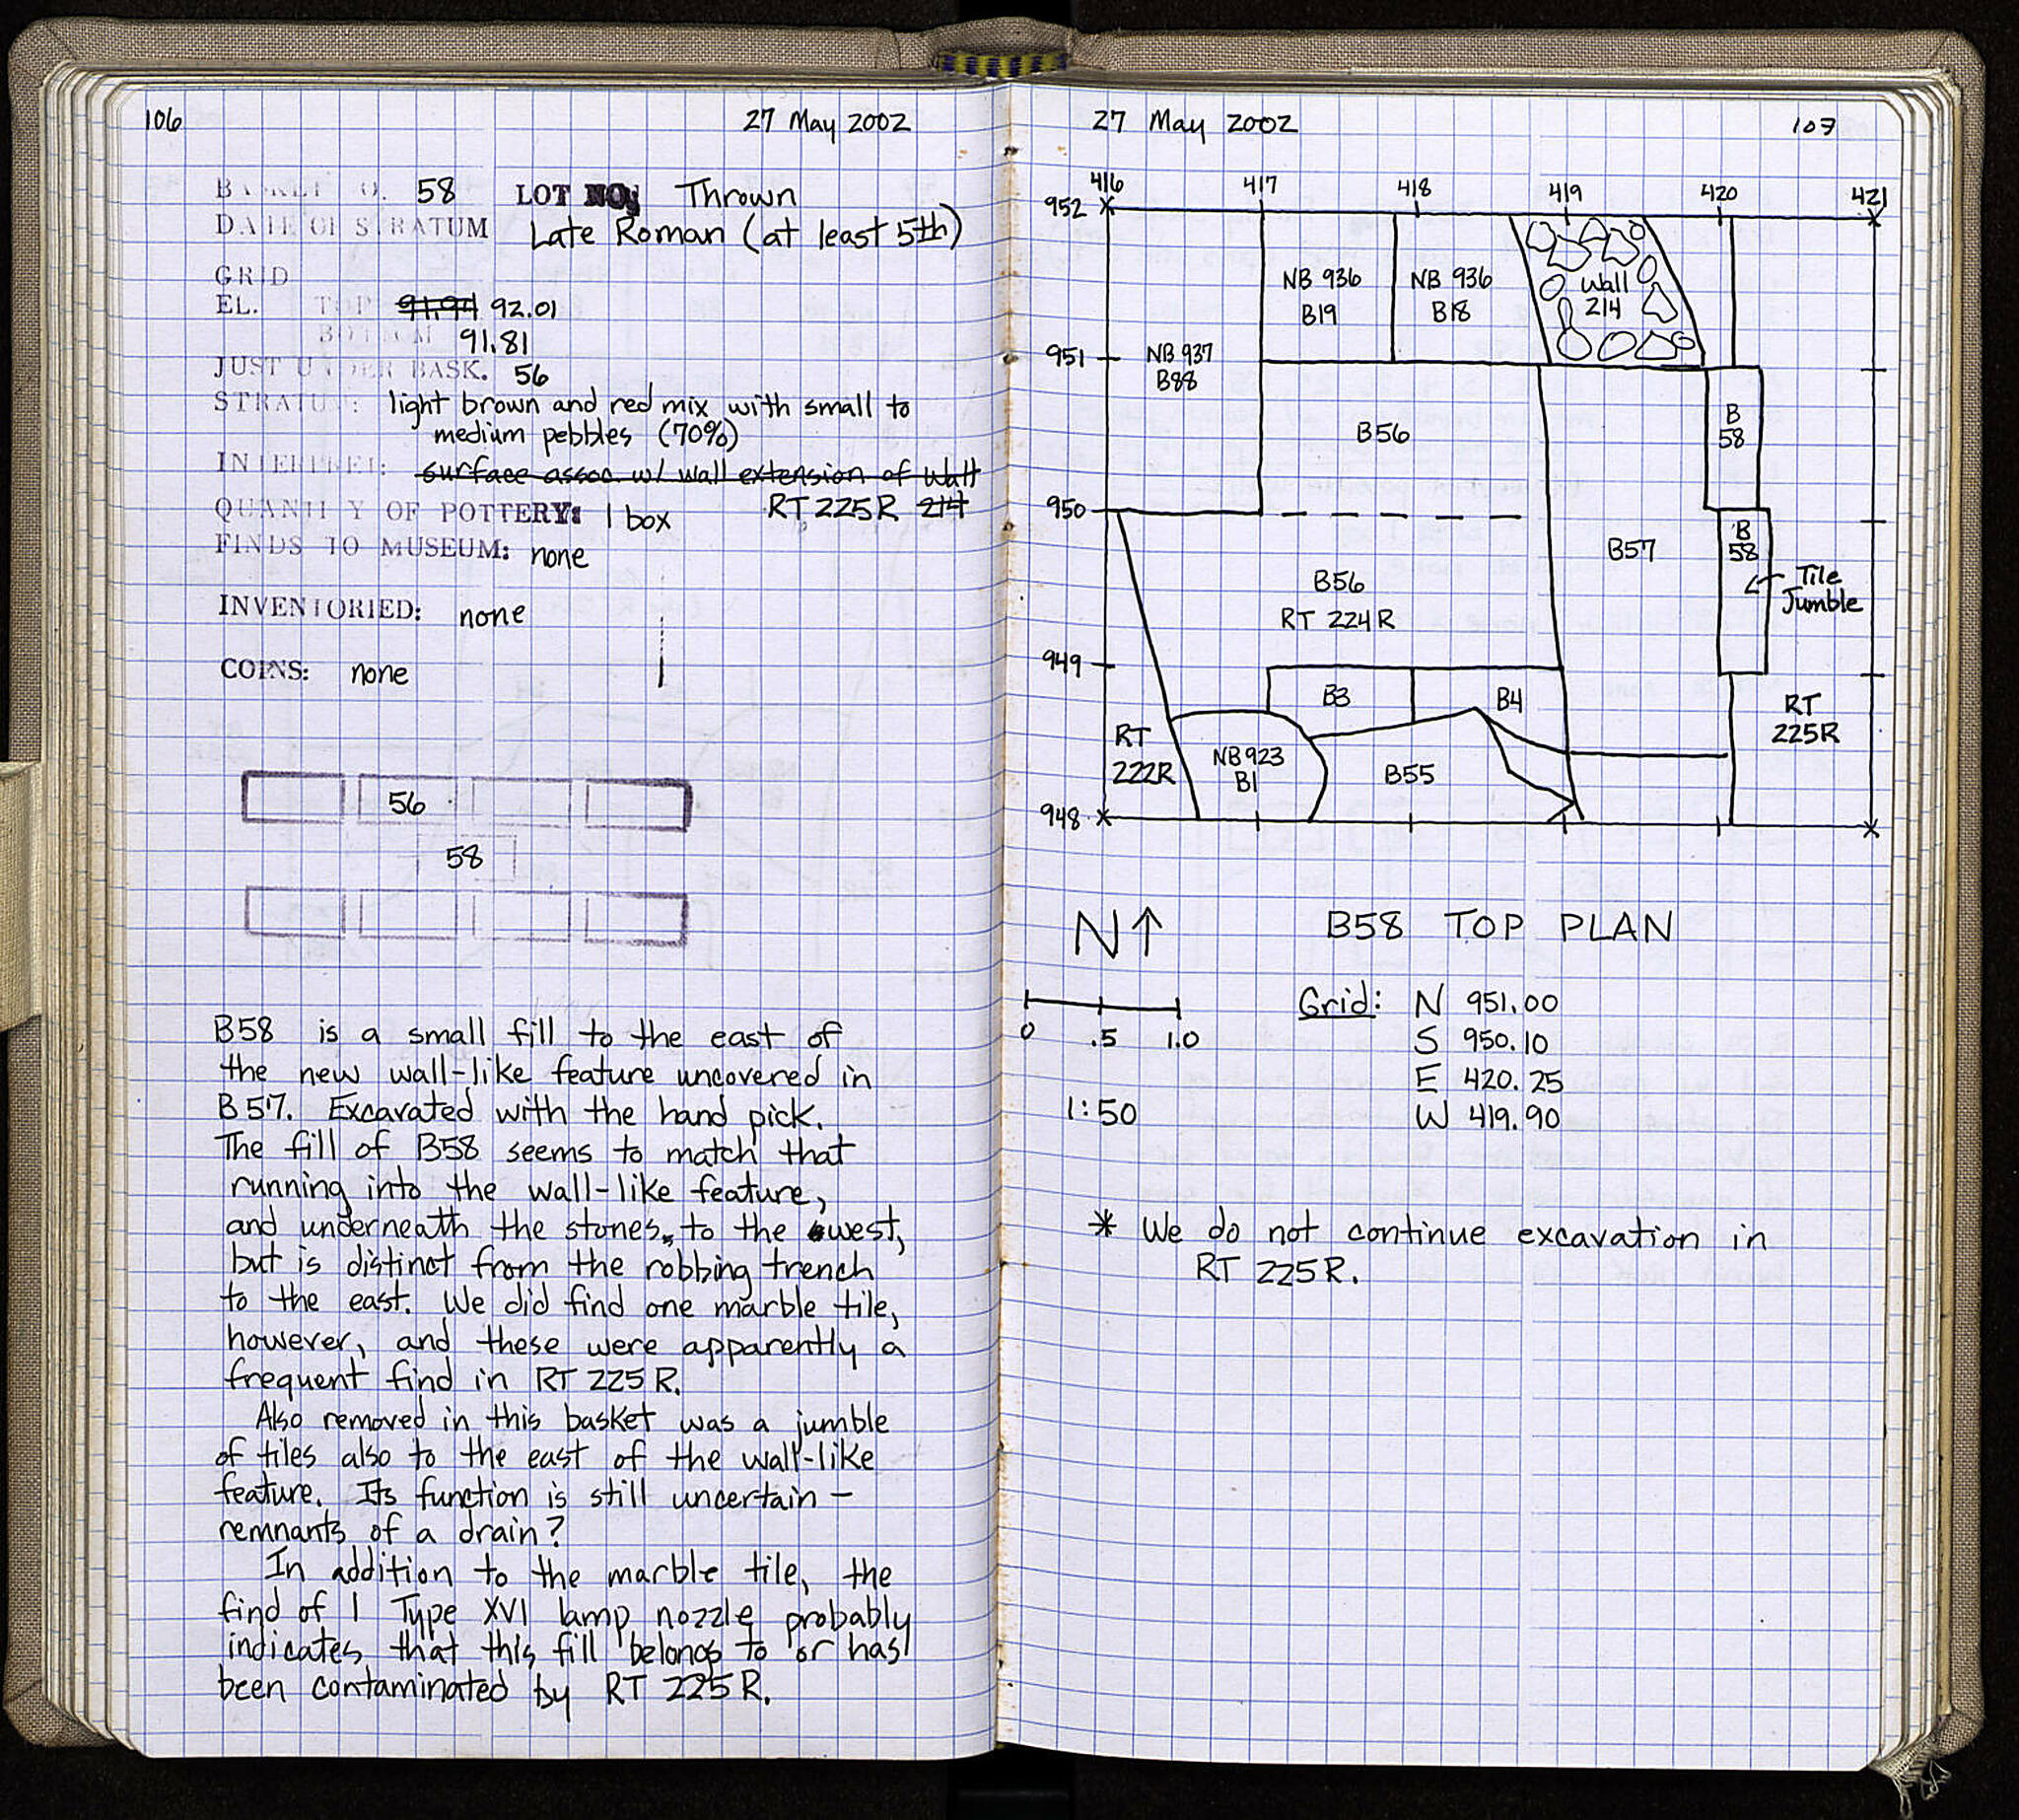 106
27 May 2002
BASKET NO. 58 LOT NO. Thrown
DATE OF STRATUM Late Roman (at least 5th)
GRID
EL. TOP 91.94 92.01
BOTTOM 91.81
JUST UNDER BASK. 56
STRATUM: light brown and red mix with small to
medium pebbles (70%)
INTERPRET: surface assoc. w/ wall extension of Wall
214
RT 225R
QUANTITY OF POTTERY: 1 box
FINDS TO MUSEUM: none
INVENTORIED: none
COINS: none
56
58
B58 is a small fill to the east of
the new wall-like feature uncovered in
B57. Excavated with the hand pick.
The fill of B58 seems to match that
running into the wall-like feature,
and underneath the stones, to the west,
but is distinct from the robbing trench
to the east. We did find one marble tile,
however, and these were apparently a
frequent find in RT 225R.
Also removed in this basket was a jumble
of tiles also to the east of the wall-like
feature. Its function is still uncertain –
remnants of a drain?
In addition to the marble tile, the
find of 1 Type XVI lamp nozzle probably
indicates that this fill belongs to or has
been contaminated by RT 225R.
27 May 2002
107
416 417 418 419 420 421
952
951
950
949
948
NB 936
B19
NB 936
B18
Wall
214
NB 937
B88
B56
B
58
B
58
B57
Tile
Jumble
B56
RT 224R
B3
B4
RT
225R
RT
222R
NB923
B1
B55
N↑
B58 TOP PLAN
0 .5 1.0
1:50
Grid: N 951.00
S 950.10
E 420.25
W 419.90
* We do not continue excavation in
RT 225R.